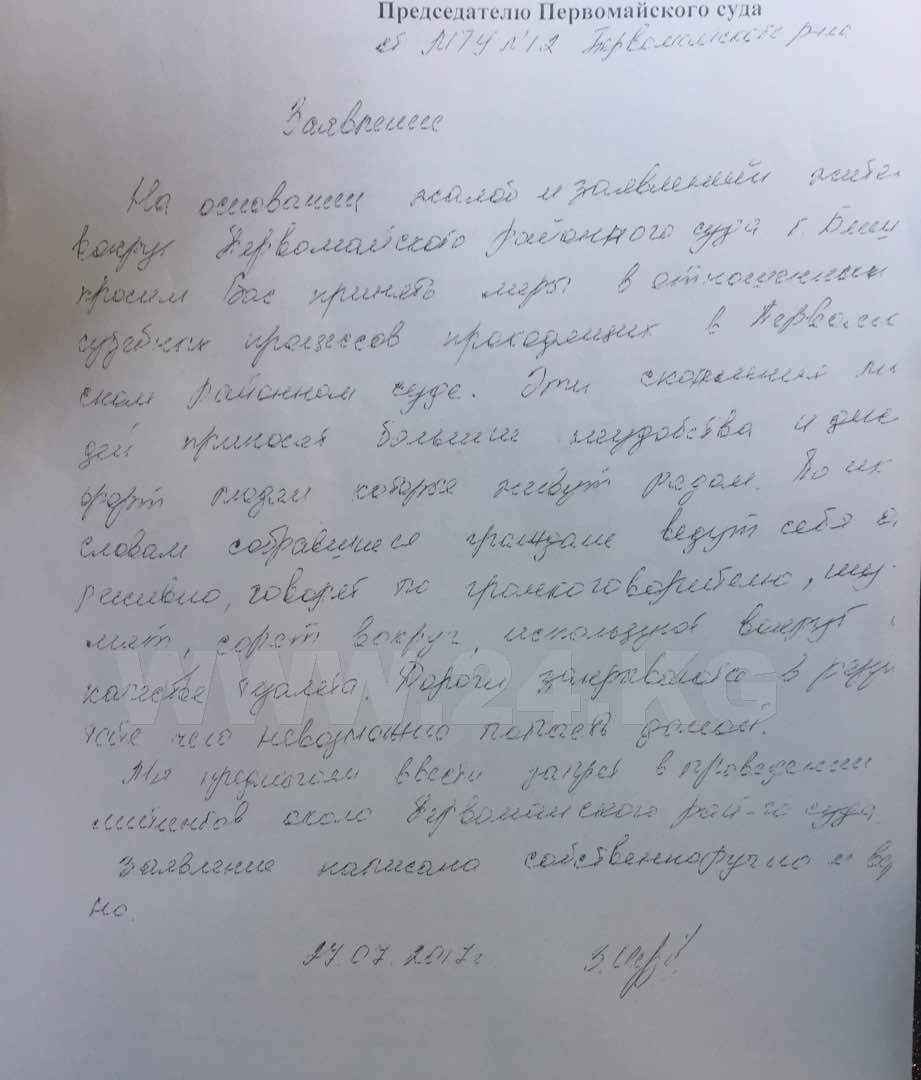 Председателю Первомайского суда
от МТУ №12 Первомайского р-на
Заявление
На основании жалоб и заявлений жите
вокруг Первомайского районного суда г. Биш
просим Вас принять меры в отношении
судебных процессов проходящих в Первомай
ском районном суде. Эти скопления лю
дей приносят большие неудобства и диск
форт людям которые живут рядом. По их
словам собравшиеся граждане ведут себя а
рессивно, говорят по громкоговорителю, шу-
мят, сорят вокруг, используют вокруг
качестве туалета Дороги закрываются в резу
тате чего невозможно попасть домой.
WWW.24.KG
Мы предлагаем ввести запрет в проведении
митингов около Первомайского рай-го суда
Заявление написано собственноручно и вер
но.
27.07.2017г